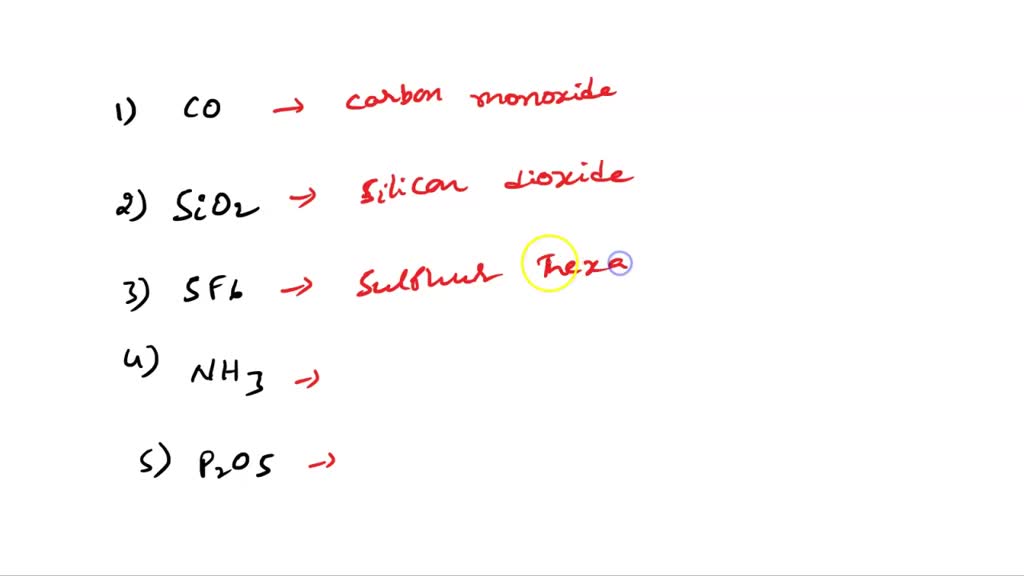 1) CO → Carbon monoxide
2) SiO2 → Silicon dioxide
3) SF6 → Sulphur hexa
4) NH3 →
5) P2O5 →